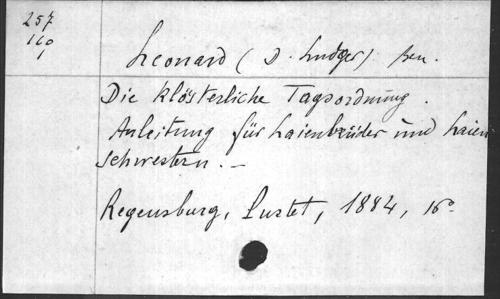 257
160
1
Leonard (D. Ludger) ben.
Die klösterliche Tagsordnung.
Anleitung für Laienbrüder und Laien
schwestern. —
Regensburg, Pustet, 1884, 16°